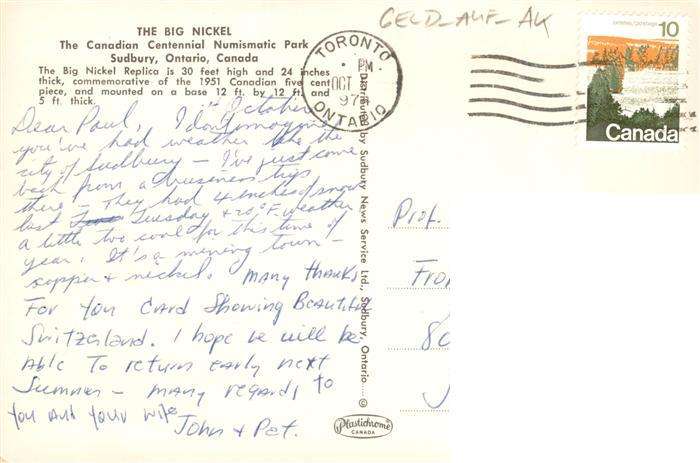 THE BIG NICKEL
The Canadian Centennial Numismatic Park
Sudbury, Ontario, Canada
The Big Nickel Replica is 30 feet high and 24 inches
thick, commemorative of the 1951 Canadian five cent
piece, and mounted on a base 12 ft. by 12 ft. and
5 ft. thick.
October
Dear Paul, I don't imagine
you've had weather like the
city of Sudbury – I've just come
back from a business trip
there – They had 4 inches of snow
last Tuesday + 20°F. weather
a little too cool for this time of
year. It's a mining town –
copper + nickel. MANY THANKS
FOR YOU CARD SHOWING BEAUTIFUL
SWITZERLAND. I HOPE WE WILL BE
ABLE TO RETURN EARLY NEXT
SUMMER – MANY REGARDS TO
YOU AND YOUR WIFE
JOHN + PET.
Distributed by Sudbury News Service Ltd., Sudbury, Ontario
Plastichrome
CANADA
GELD-AUF-AK
TORONTO
PM
OCT
197
ONTARIO
postes/postage
10
Canada
Prof.